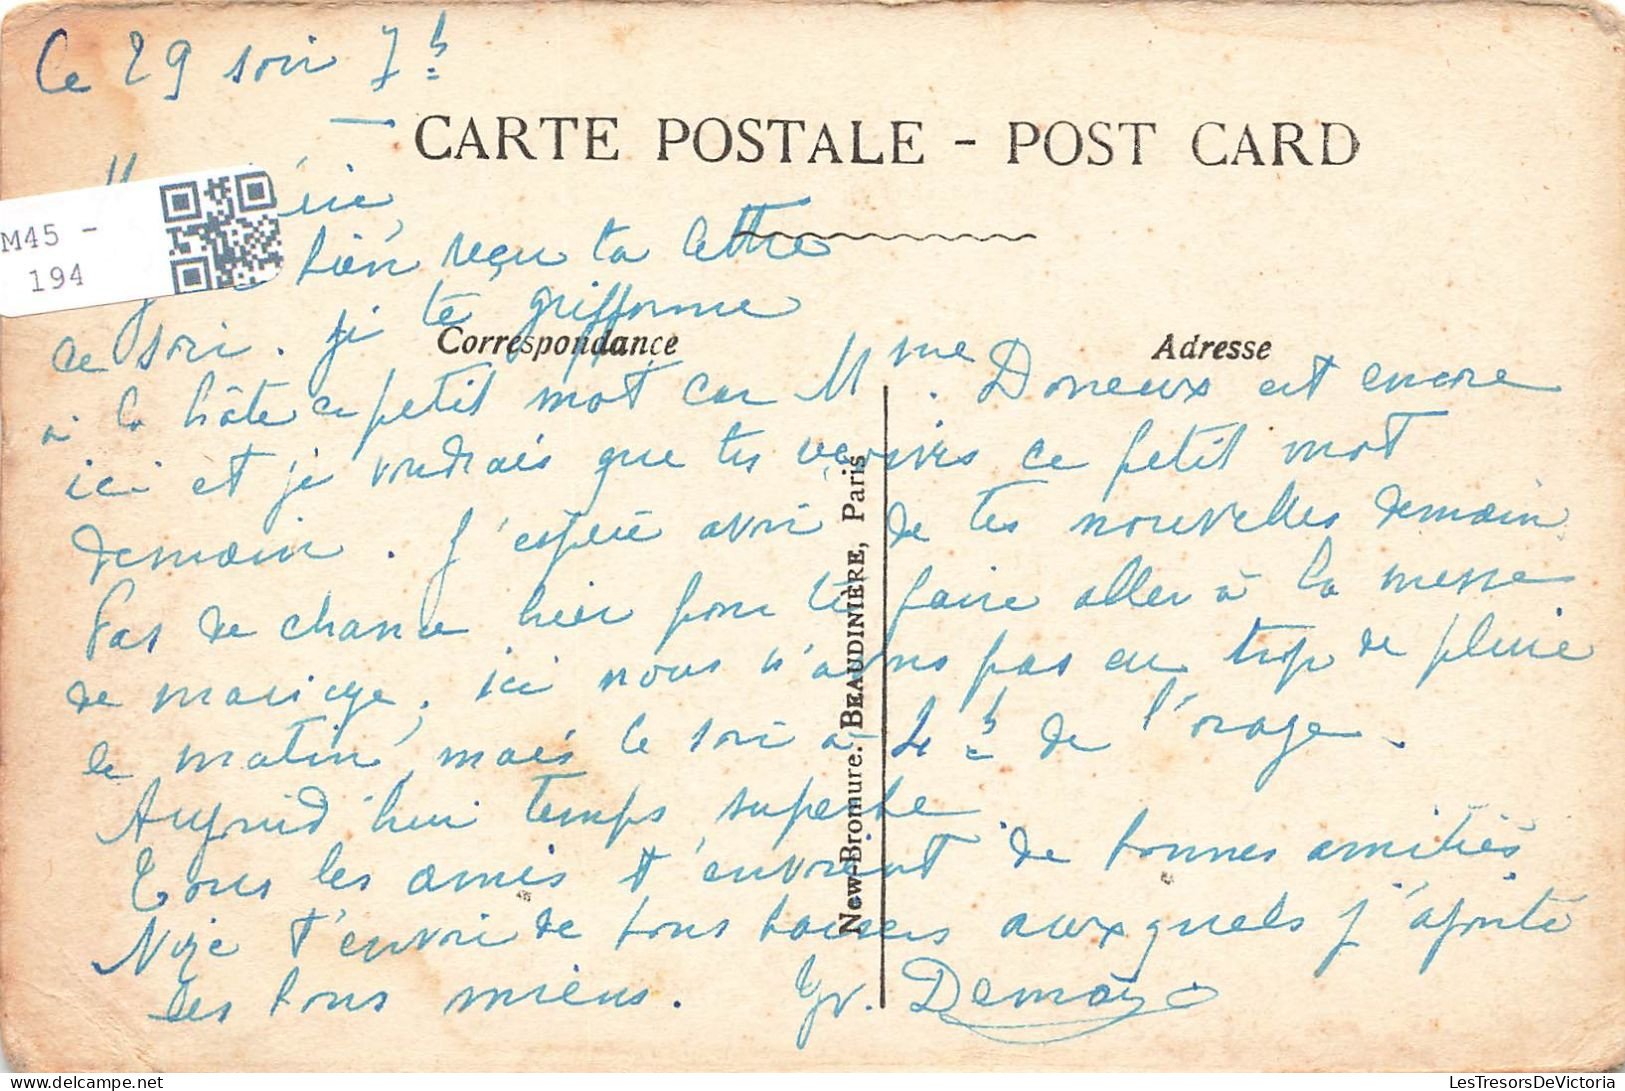 Ce 29 soir 7h
CARTE POSTALE - POST CARD
M45 -
194
bien reçu ta lettre
ce soir. Je te griffonne
Correspondance
Adresse
à la hâte ce petit mot car Mme. Doneux est encore
ici et je voudrais que tu reçoives ce petit mot
demain. J'espère avoir de tes nouvelles demain
Pas de chance hier pour te faire aller à la messe
de mariage, ici nous n'avons pas eu trop de pluie
le matin, mais le soir à 4h de l'orage.
Aujourd'hui temps superbe
Tous les amis t'envoient de bonnes amitiés
t'envoie de bons baisers auxquels j'ajoute
les bons miens. Yv.
New-Bromure. BEAUDINIÈRE, Paris
LesTresorsDeVictoria